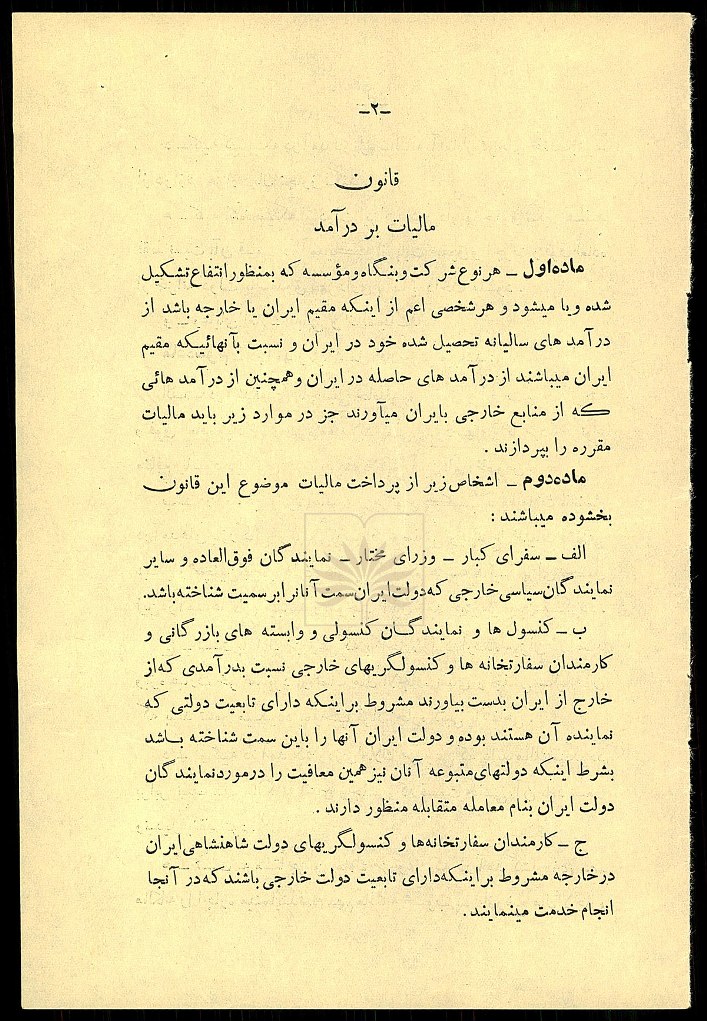 -۲-
قانون
مالیات بر درآمد
ماده‌اول – هر نوع شرکت و بنگاه و مؤسسه که بمنظور انتفاع تشکیل
شده و یا میشود و هر شخصی اعم از اینکه مقیم ایران یا خارجه باشد از
درآمد های سالیانه تحصیل شده خود در ایران و نسبت بآنهائیکه مقیم
ایران میباشند از درآمد های حاصله در ایران و همچنین از درآمد هائی
که از منابع خارجی بایران میآورند جز در موارد زیر باید مالیات
مقرره را بپردازند .
ماده‌دوم – اشخاص زیر از پرداخت مالیات موضوع این قانون
بخشوده میباشند :
الف – سفرای کبار – وزرای مختار – نمایندگان فوق‌العاده و سایر
نمایندگان سیاسی خارجی که دولت ایران سمت آنانرا برسمیت شناخته باشد.
ب – کنسول ها و نمایندگان کنسولی و وابسته های بازرگانی و
کارمندان سفارتخانه ها و کنسولگریهای خارجی نسبت بدرآمدی که از
خارج از ایران بدست بیاورند مشروط بر اینکه دارای تابعیت دولتی که
نماینده آن هستند بوده و دولت ایران آنها را باین سمت شناخته باشد
بشرط اینکه دولتهای متبوعه آنان نیز همین معافیت را در مورد نمایندگان
دولت ایران بنام معامله متقابله منظور دارند .
ج – کارمندان سفارتخانه‌ها و کنسولگریهای دولت شاهنشاهی ایران
در خارجه مشروط بر اینکه دارای تابعیت دولت خارجی باشند که در آنجا
انجام خدمت مینمایند .